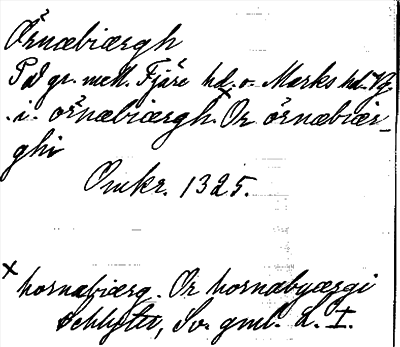 Örnæbiærgh
På gr. mell. Fjäre hd. o. Marks hd. Vg.
.i. örnæbiærgh. Or örnæbiær-
ghi
Omkr. 1325.
x hornæbiærg. Or hornæbyærgi
Schlyter, Sv. gml. L. I.